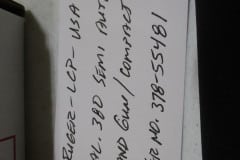 RUGER - LCP - USA
AL. 380 SEMI AUT
AND GUN / COMPACT
NO. 378-55481